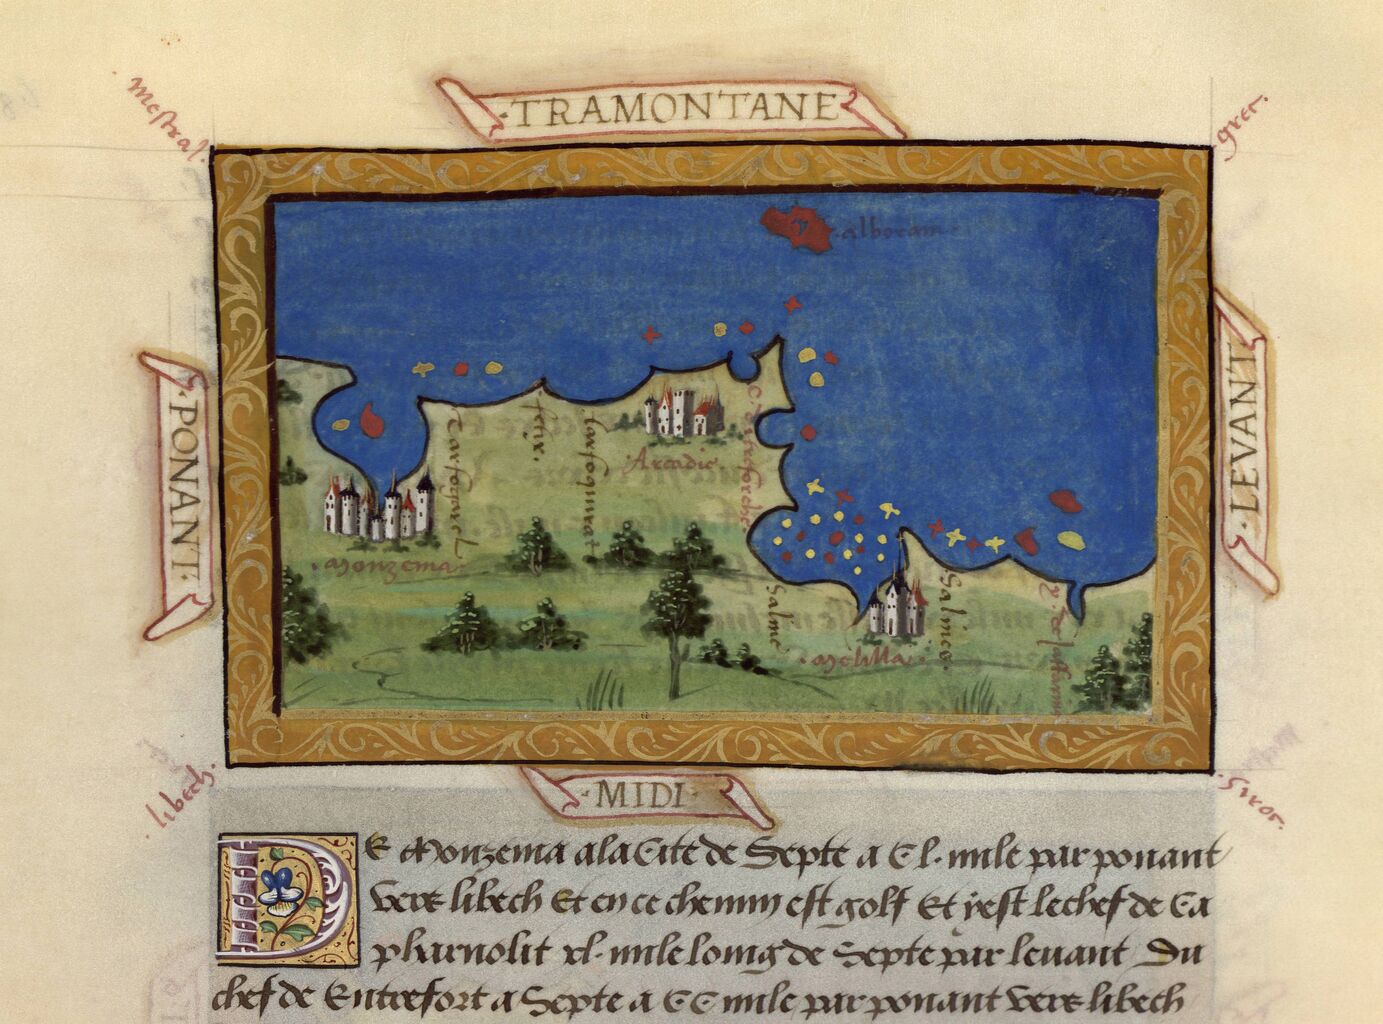 mestral.
·TRAMONTANE
grec.
·alboram·
·PONANT·
·LEVANT·
c. dentreforche.
Arcadie.
·Monzema·
Saline
Salnico.
·Melilla·
libech.
·MIDI·
Siroc.
DE Monzema a la Cite de Septe a CL. mile par ponant
vers libech Et en ce chemin est golf Et y est le chef de Ca
pharnolit xl. mile loing de Septe par levant Du
chef de Entrefort a Septe a CC mile par ponant vers libech